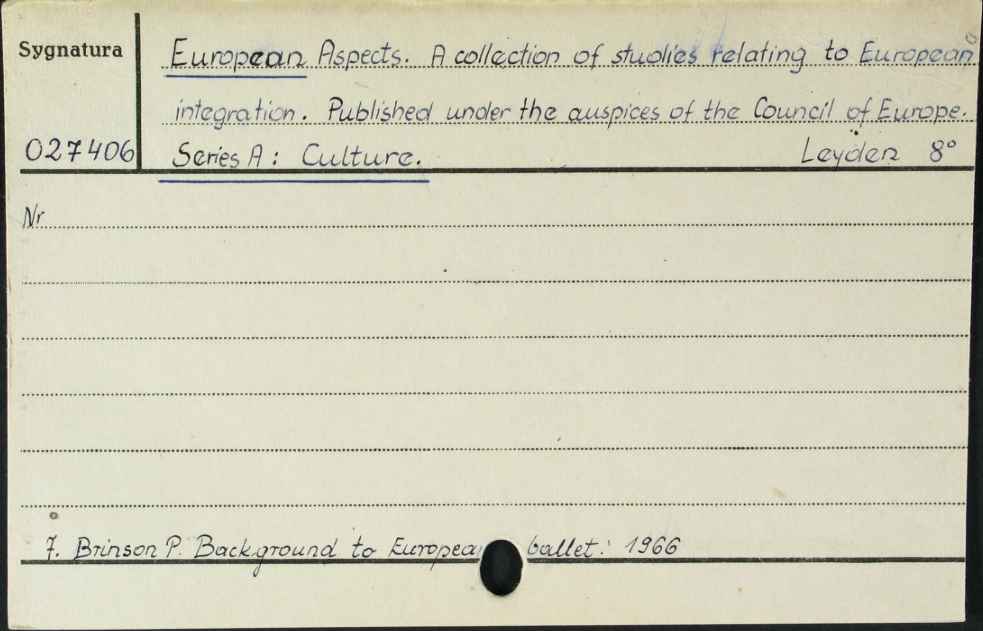 Sygnatura
European Aspects. A collection of studies relating to European
integration. Published under the auspices of the Council of Europe.
027406 Series A: Culture. Leyden 8°
Nr
7. Brinson P. Background to Europea ballet. 1966